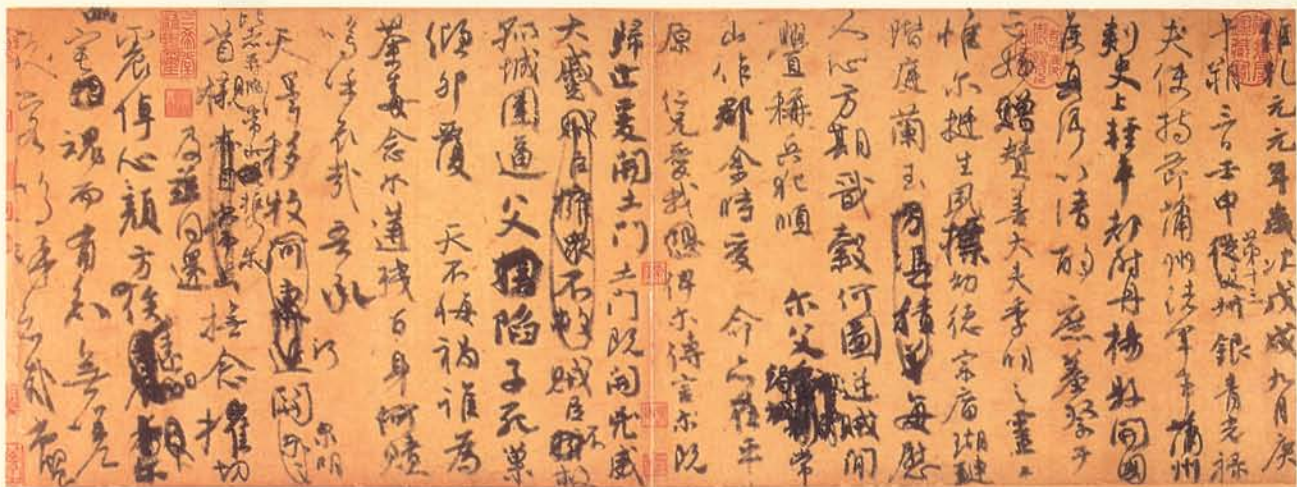 維乾元元年歲次戊戌九月庚
午朔三日壬申第十三從父銀青光祿
夫使持節蒲州諸軍事蒲州
刺史上輕車都尉丹楊縣開國
侯真卿以清酌庶羞祭于
亡姪贈贊善大夫季明之靈曰
惟爾挺生夙標幼德宗廟瑚璉
階庭蘭玉方憑積善每慰
人心方期戩穀何圖逆賊閒
釁稱兵犯順爾父竭誠常
山作郡余時受命亦在平
原仁兄愛我俾爾傳言爾既
歸止爰開土門土門既開凶威
大蹙賊臣擁眾不救賊臣不救
孤城圍逼父陷子死巢
傾卵覆天不悔禍誰為
荼毒念爾遘殘百身何贖
嗚乎哀哉吾承
天澤移牧河東近河關爾明
比者再陷常山攜爾
首櫬及茲同還撫念摧切
震悼心顏方俟遠日卜爾幽
宅魂而有知無嗟
久客嗚呼哀哉尚饗